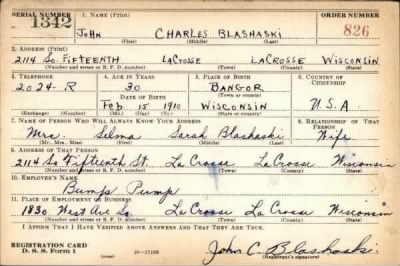 SERIAL NUMBER 1. NAME (Print) ORDER NUMBER
1342 John CHARLES BLASHASKI 826
(First) (Middle) (Last)
2. ADDRESS (Print)
2114 So. FIFTEENTH LaCROSSE LaCROSSE WISCONSIN
(Number and street or R. F. D. number) (Town) (County) (State)
3. TELEPHONE 4. AGE IN YEARS 5. PLACE OF BIRTH 6. COUNTRY OF CITIZENSHIP
2024-R 30 BANGOR
DATE OF BIRTH (Town or county)
Feb 15 1910 WISCONSIN U.S.A
(Exchange) (Number) (Mo.) (Day) (Yr.) (State or country)
7. NAME OF PERSON WHO WILL ALWAYS KNOW YOUR ADDRESS 8. RELATIONSHIP OF THAT PERSON
Mrs. Selma Sarah Blashaski Wife
(Mr., Mrs., Miss) (First) (Middle) (Last)
9. ADDRESS OF THAT PERSON
2114 So Fifteenth St. La Crosse La Crosse Wisconsin
(Number and street or R. F. D. number) (Town) (County) (State)
10. EMPLOYER'S NAME
Bump Pump
11. PLACE OF EMPLOYMENT OR BUSINESS
1830 West Ave So La Crosse La Crosse Wisconsin
(Number and street or R. F. D. number) (Town) (County) (State)
I AFFIRM THAT I HAVE VERIFIED ABOVE ANSWERS AND THAT THEY ARE TRUE.
REGISTRATION CARD John C Blashaski
D. S. S. Form 1 (Registrant's signature)